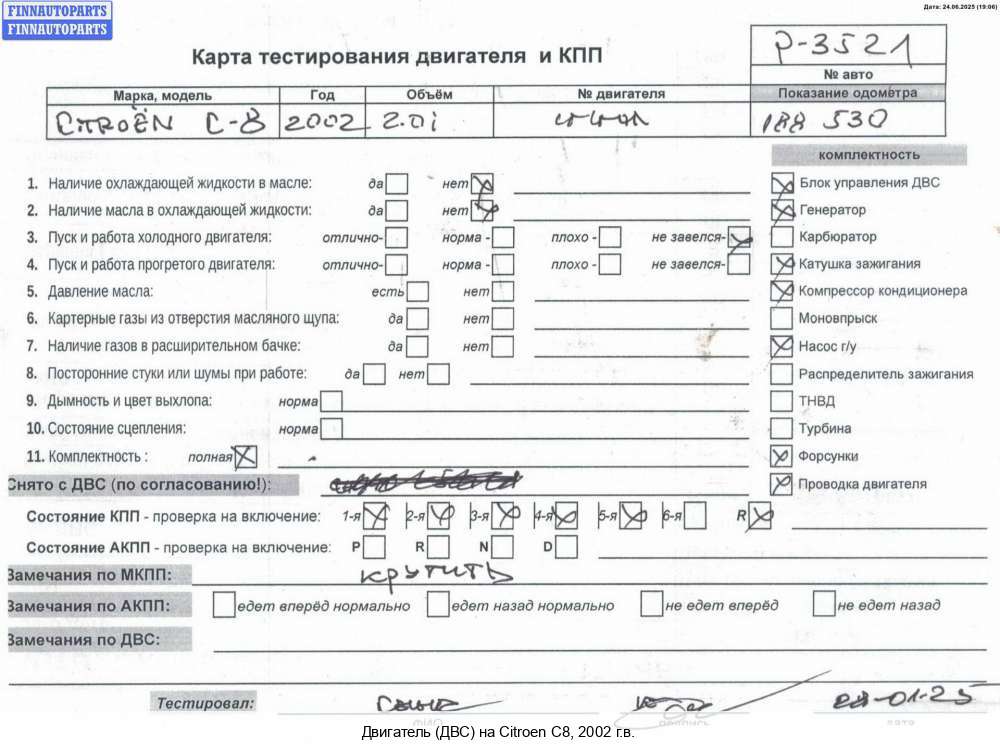 FINNAUTOPARTS
FINNAUTOPARTS
Дата: 24.06.2025 (19:06)
Карта тестирования двигателя и КПП
P-3521
№ авто
Марка, модель Год Объём № двигателя Показание одометра
CITROËN C-8 2002 2.0i 188 530
комплектность
1. Наличие охлаждающей жидкости в масле: да нет
Блок управления ДВС
2. Наличие масла в охлаждающей жидкости: да нет
Генератор
3. Пуск и работа холодного двигателя: отлично- норма - плохо - не завелся-
Карбюратор
4. Пуск и работа прогретого двигателя: отлично- норма - плохо - не завелся-
Катушка зажигания
5. Давление масла: есть нет
Компрессор кондиционера
6. Картерные газы из отверстия масляного щупа: да нет
Моновпрыск
7. Наличие газов в расширительном бачке: да нет
Насос г/у
8. Посторонние стуки или шумы при работе: да нет
Распределитель зажигания
9. Дымность и цвет выхлопа: норма
ТНВД
10. Состояние сцепления: норма
Турбина
11. Комплектность : полная
Форсунки
Снято с ДВС (по согласованию!):
Проводка двигателя
Состояние КПП - проверка на включение: 1-я 2-я 3-я 4-я 5-я 6-я R
Состояние АКПП - проверка на включение: P R N D
Замечания по МКПП: крутить
Замечания по АКПП: едет вперёд нормально едет назад нормально не едет вперёд не едет назад
Замечания по ДВС:
Тестировал: 28-01-25
подпись дата
Двигатель (ДВС) на Citroen C8, 2002 г.в.